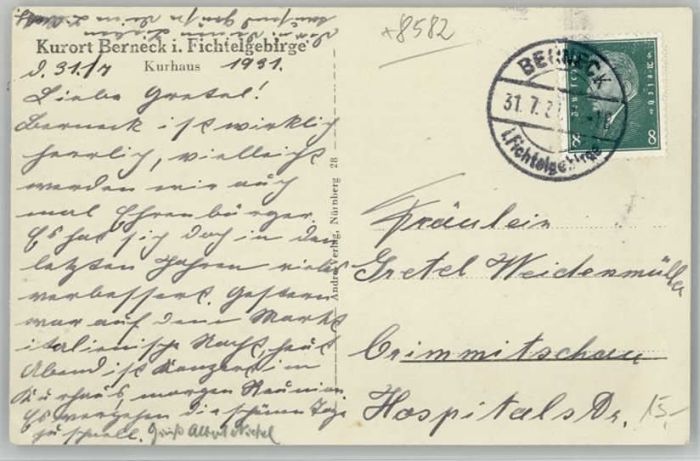 Kurort Berneck i. Fichtelgebirge
Kurhaus
d. 31./7. 1931.
Liebe Gretel!
Berneck ist wirklich
herrlich, vielleicht
werden wir auch
mal Ehrenbürger.
Es hat sich doch in den
letzten Jahren vieles
verbessert. Gestern
war auf dem Markt
italienische Nacht, heut
Abend ist Konzert im
Kurhaus, morgen Reunion.
Es vergehen die schönen Tage
zu schnell. Gruß Albert
Andro Verlag, Nürnberg 28
*8582
BERNECK
31.7.31
i. Fichtelgebirge
8 8
Fräulein
Gretel Weidenmüller
Crimmitschau
Hospitalstr.
15,-